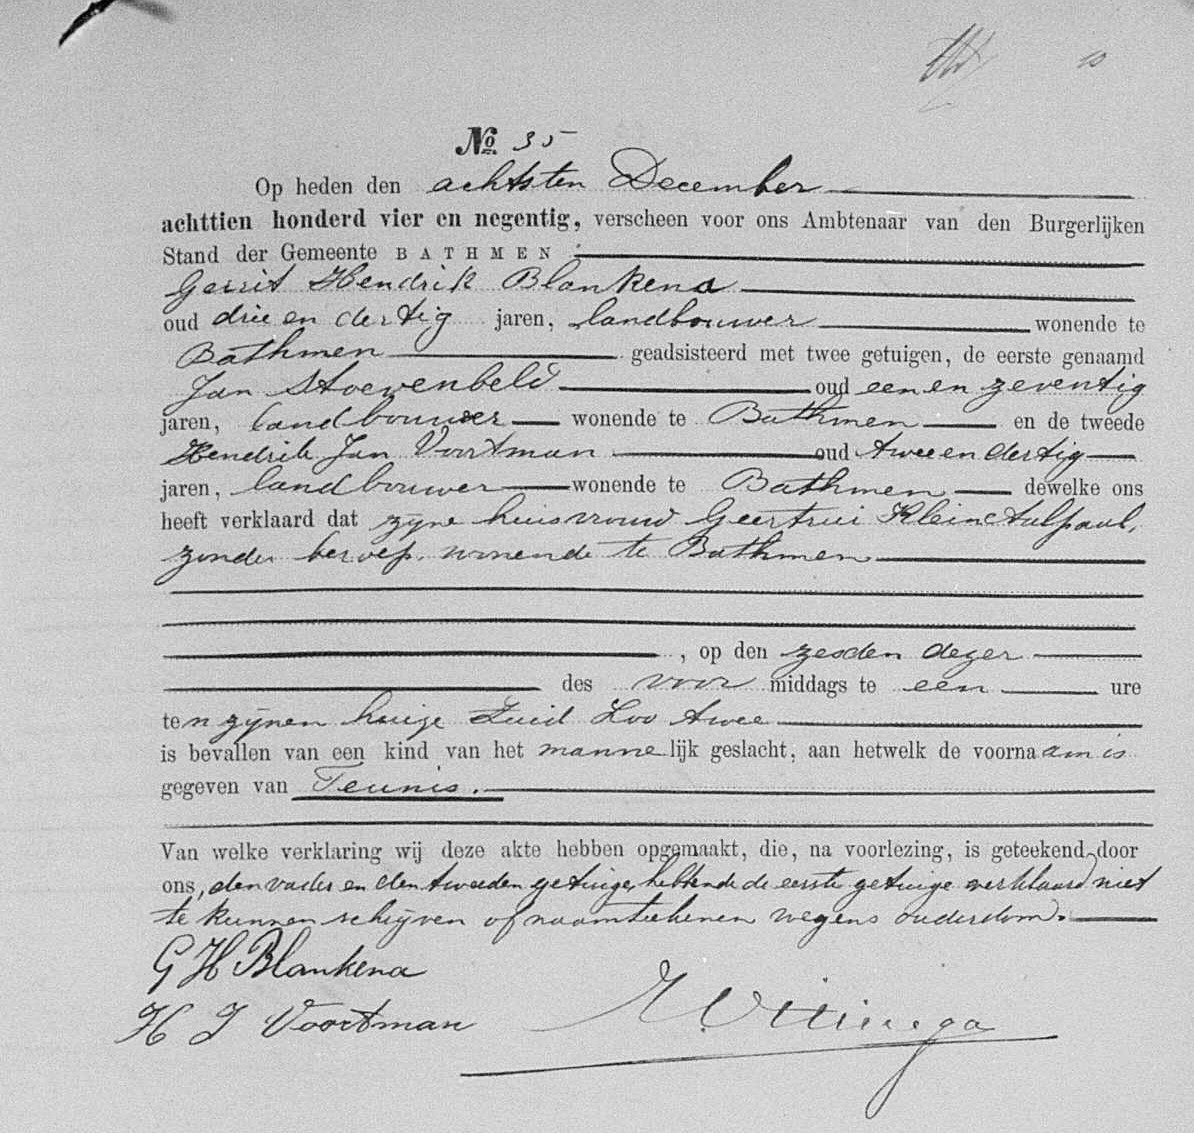 No. 35
Op heden den achtsten December
achttien honderd vier en negentig, verscheen voor ons Ambtenaar van den Burgerlijken
Stand der Gemeente BATHMEN:
Gerrit Hendrik Blankena
oud drie en dertig jaren, landbouwer wonende te
Bathmen geadsisteerd met twee getuigen, de eerste genaamd
Jan Stoevenbeld oud een en zeventig
jaren, landbouwer wonende te Bathmen en de tweede
Hendrik Jan Voortman oud twee en dertig
jaren, landbouwer wonende te Bathmen dewelke ons
heeft verklaard dat zijne huisvrouw Geertrui Klein
zonder beroep, wonende te Bathmen
, op den zesden dezer
des voormiddags te een ure
ten zijnen huize Zuid Loo twee
is bevallen van een kind van het mannelijk geslacht, aan hetwelk de voornaam is
gegeven van Teunis.
Van welke verklaring wij deze akte hebben opgemaakt, die, na voorlezing, is geteekend door
ons, den vader en den tweeden getuige, hebbende de eerste getuige verklaard niet
te kunnen schrijven of naamteekenen wegens ouderdom.
G H Blankena
H J Voortman